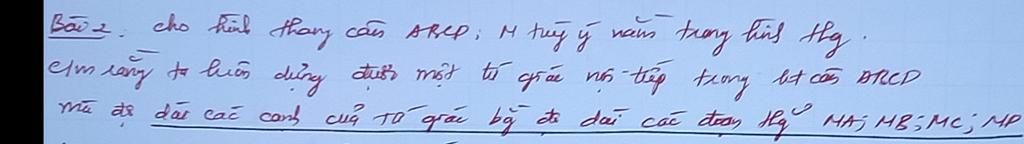 Bài 2. cho hình thang cân ABCD; M tuỳ ý nằm trong hình thg.
c/m rằng ta luôn dựng được một tứ giác nội tiếp trong ht cân ABCD
mà độ dài các cạnh của tứ giác bg độ dài các đoạn thg MA; MB; MC; MD